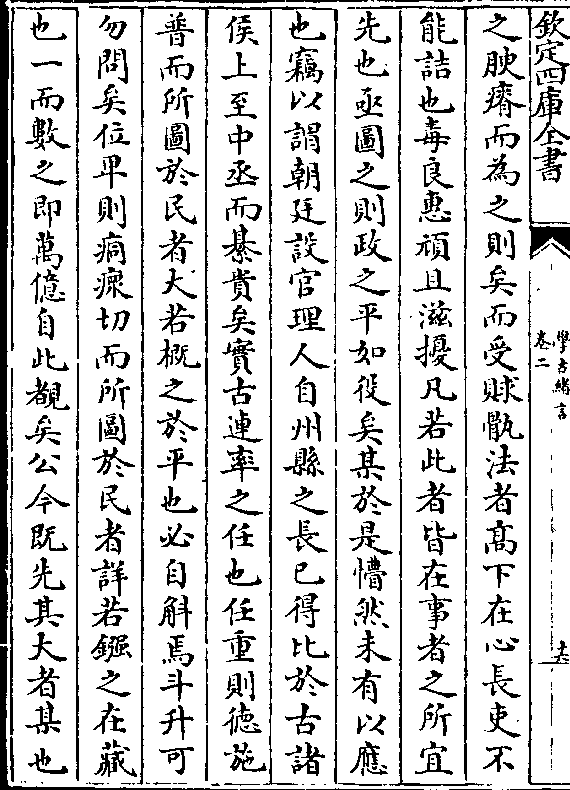 欽定四庫全書
學古緒言
卷二
十六
之腴瘠而為之則矣而受賕骫法者高下在心長吏不
能詰也毒良惠頑且滋擾凡若此者皆在事者之所宜
先也亟圖之則政之平如役矣某於是懵然未有以應
也竊以謂朝廷設官理人自州縣之長已得比於古諸
侯上至中丞而綦貴矣實古連率之任也任重則德施
普而所圖於民者大若概之於平也必自斛焉斗升可
勿問矣位卑則痌瘝切而所圖於民者詳若鏹之在藏
也一而數之即萬億自此覩矣公今既先其大者某也